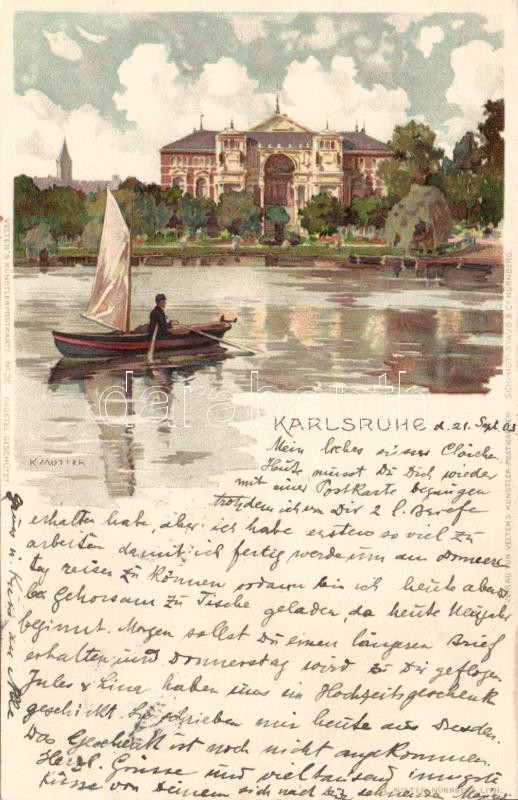 KARLSRUHE d. 21. Sept. 03
Mein liebes einziges Clärchen
Heute musst Du Dich wieder
mit einer Postkarte begnügen
trotzdem ich von Dir 2 l. Briefe
erhalten habe, aber ich habe erstens so viel zu
arbeiten damit ich fertig werde um am Donners-
tag reisen zu können sodann bin ich heute abend
bei Gehorsam zu Tische geladen, da heute Neujahr
beginnt. Morgen sollst Du einen längeren Brief
erhalten und Donnerstag wird zu Dir geflogen
Jules & Lina haben uns ein Hochzeitsgeschenk
geschickt. Sie schrieben mir heute aus Dresden.
Das Geschenk ist noch nicht angekommen.
Herzl. Grüsse und vieltausend innigste
Küsse von Deinem sich nach Dir sehnenden
K. MUTTER
VELTEN'S KÜNSTLERPOSTKARTE No 30 GESETZL. GESCHÜTZT.
SCHMIDT-STAUB & Co NÜRNBERG.
VERLAG VON VELTENS KÜNSTLER-POSTKARTEN
NISTER NÜRNBERG LITH.
darabanth